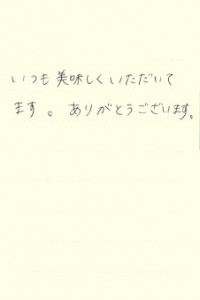 いつも美味しくいただいて
ます。ありがとうございます。